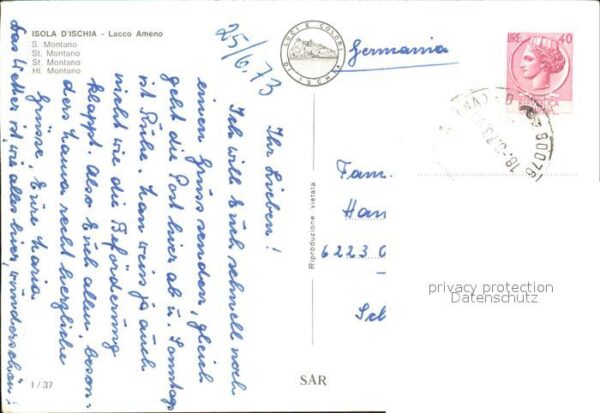 ISOLA D'ISCHIA - Lacco Ameno
S. Montano
St. Montano
St. Montano
Hl. Montano
25/6.73
LUCI E COLORI
D'ISCHIA
Germania
LIRE 40
80076
Ihr Lieben!
Ich will Euch schnell noch
einen Gruss senden, gleich
geht die Post hier ab u. Sonntags
ist Ruhe. Man weiss ja auch
nicht wie die Beförderung
klappt. Also Euch allen, beson-
ders Hanna recht herzliche
Grüsse, Eure Maria.
Das Wetter ist, wie alles hier, wunderschön!
Riproduzione vietata
Fam.
Han
6223
Sch
privacy protection
Datenschutz
I / 37
SAR